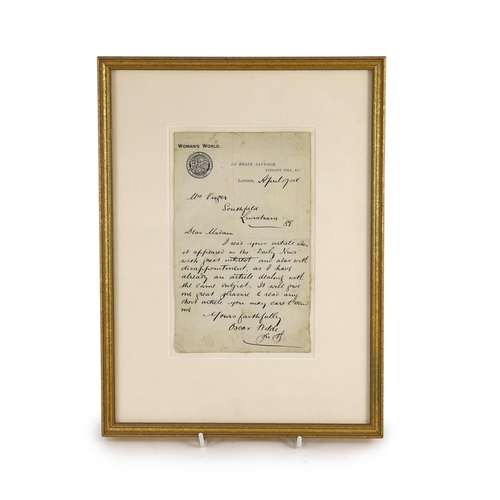 WOMAN'S WORLD.
LA BELLE SAUVAGE,
LUDGATE HILL, E.C.
LONDON, April 17
Southfield
Lewisham
88
Dear Madam
I read your article when
it appeared in the Daily News
with great interest and also with
disappointment, as I have
already an article dealing with
the same subject. It will give
me great pleasure to read any
short article you may care to send
me
Yours faithfully
Oscar Wilde